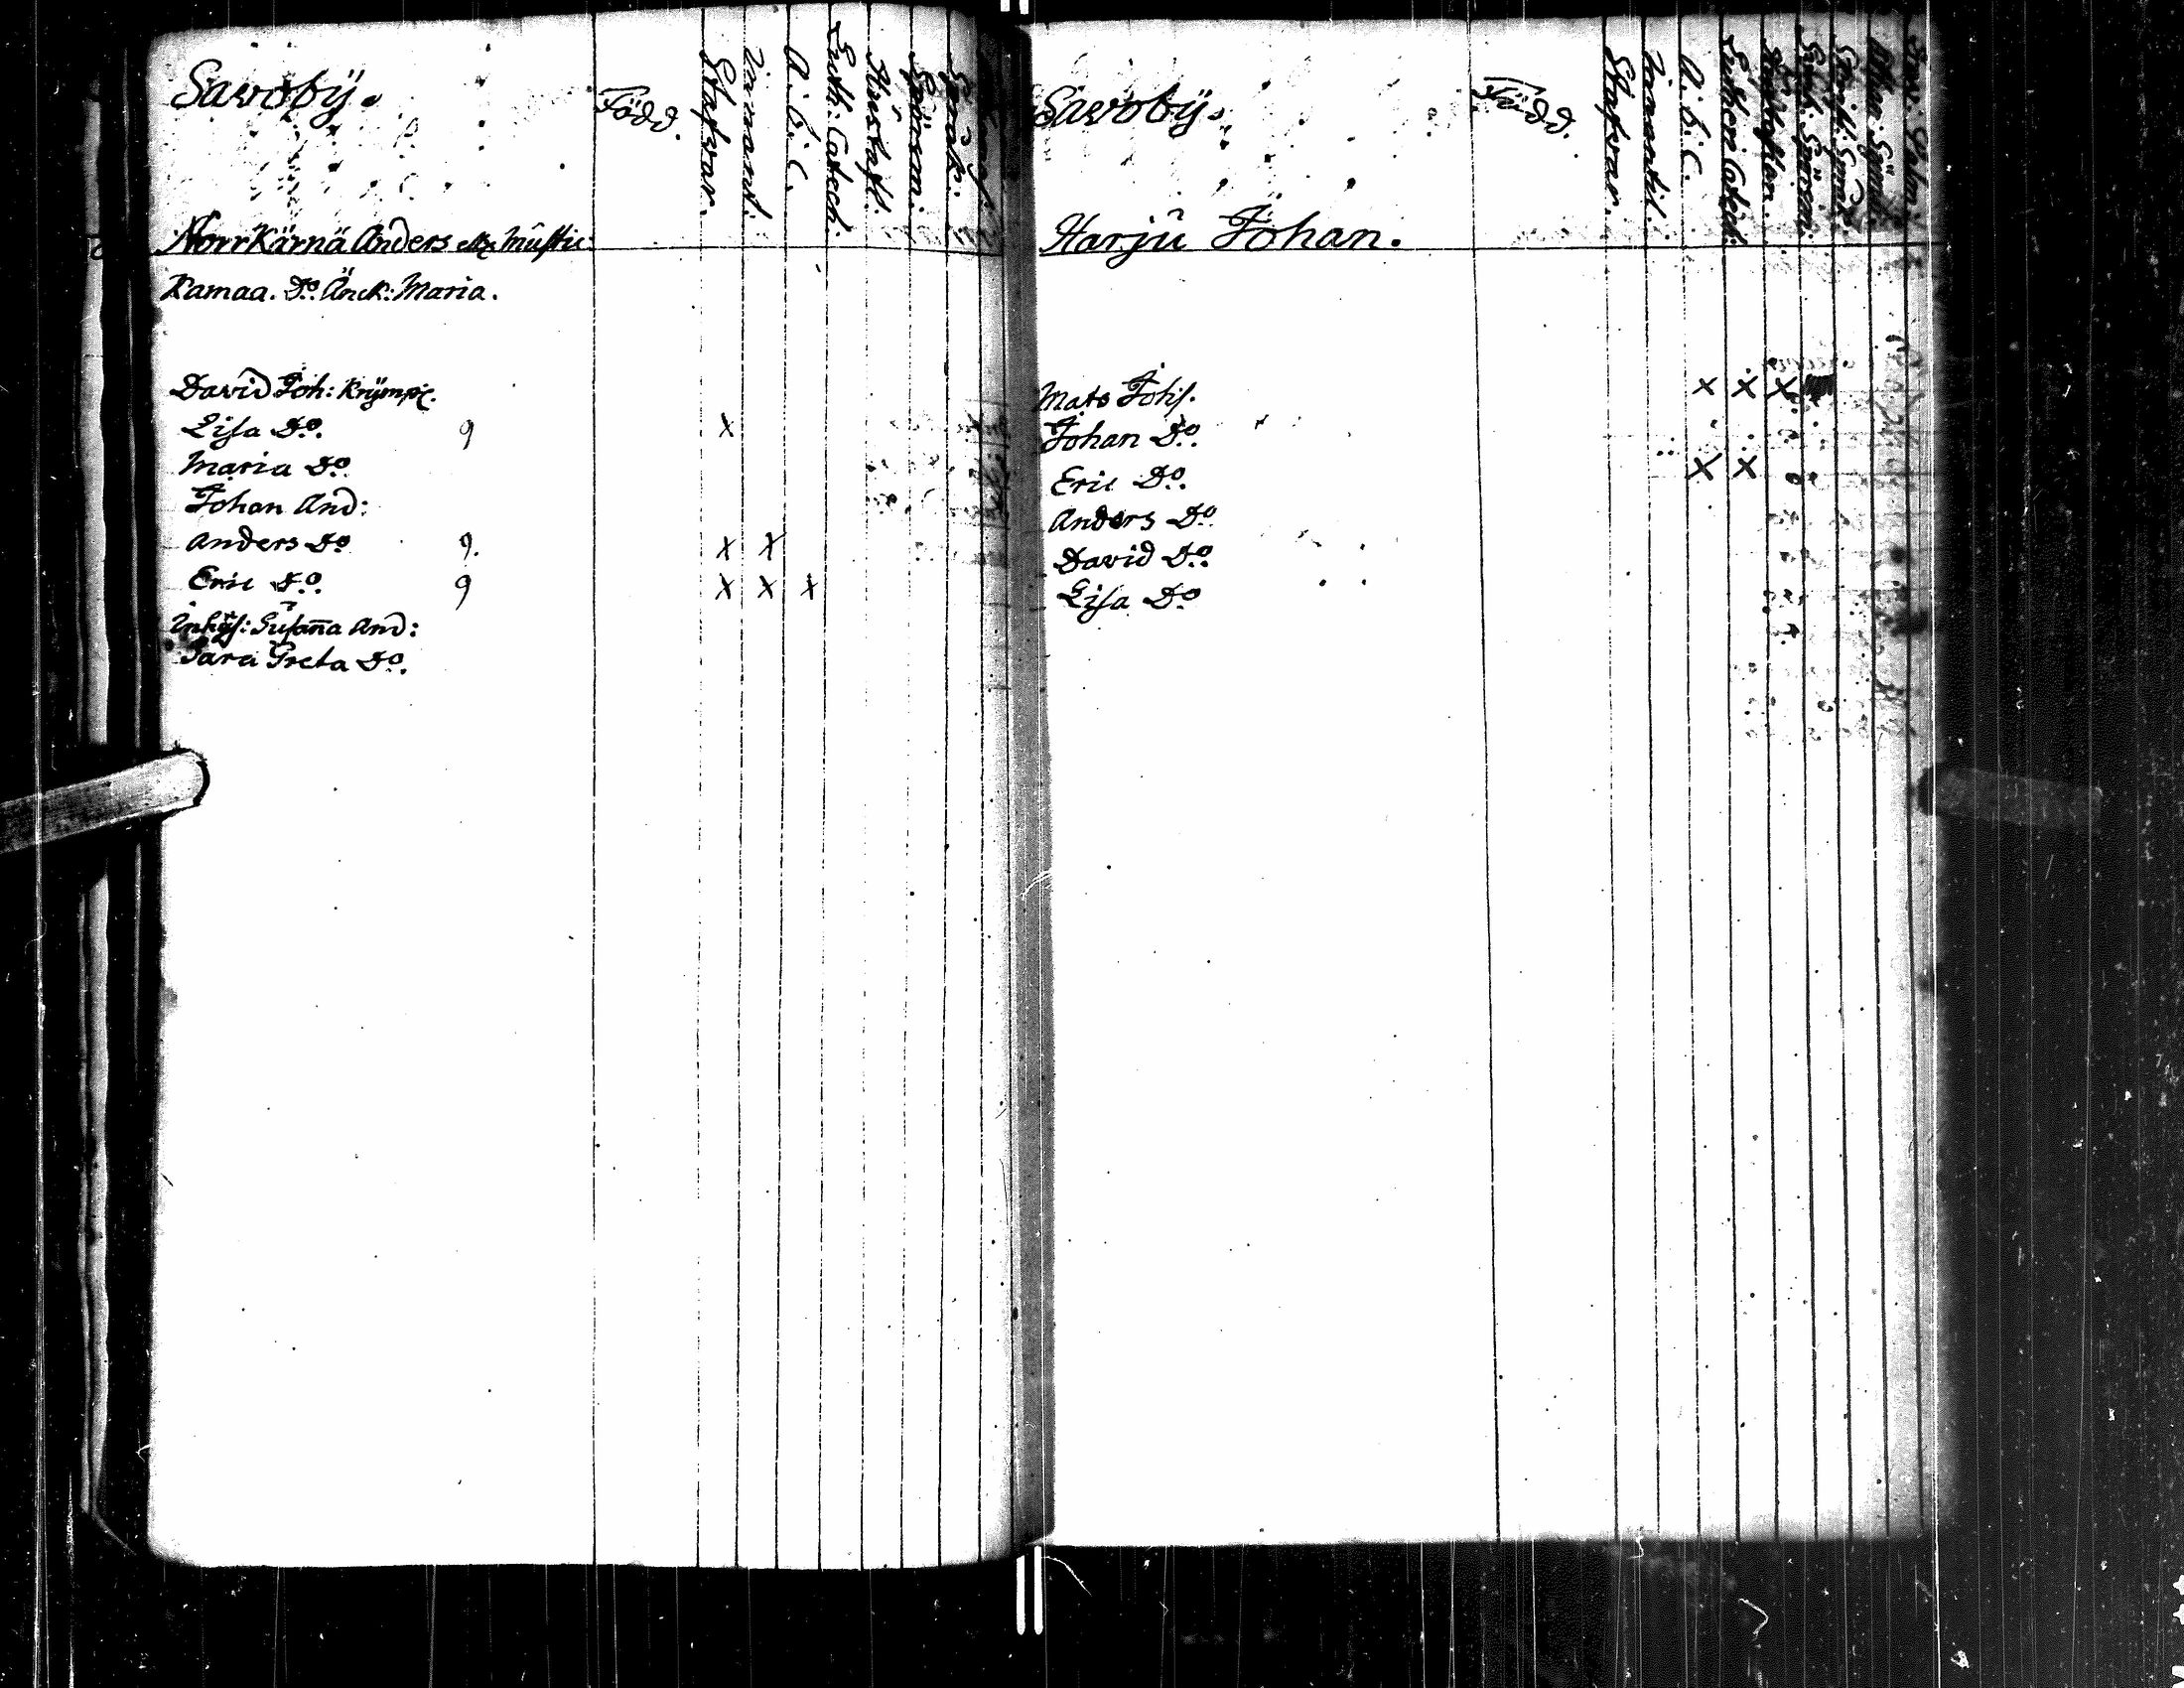 Savoby.
Född.
Stafvar.
Innant:
A. b. C.
Luth: Catech:
Hustafl:
Spörsm:
Norrkärnä Anders
Kamaa. Do. Änck: Maria.
David Joh: Krympl.
Lisa Do. 9 x
Maria Do
Johan And:
Anders Do 9. x x
Eric Do. 9 x x x
Inhys: Susanna And:
Sara Greta Do.
Savoby.
Född.
Stafvar.
Innantil.
A. b. C.
Lutheri Catech:
Hustaflan.
Harju Johan.
Mats Johs. x x x
Johan Do.
Eric Do. x x
Anders Do
David Do.
Lisa Do